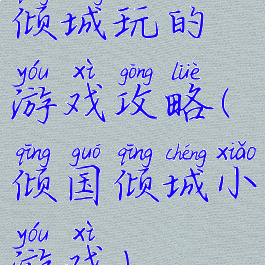 倾城玩的
yóu xì gōng lüè
游戏攻略(
qīng guó qīng chéng xiǎo
倾国倾城小
yóu xì
游戏)